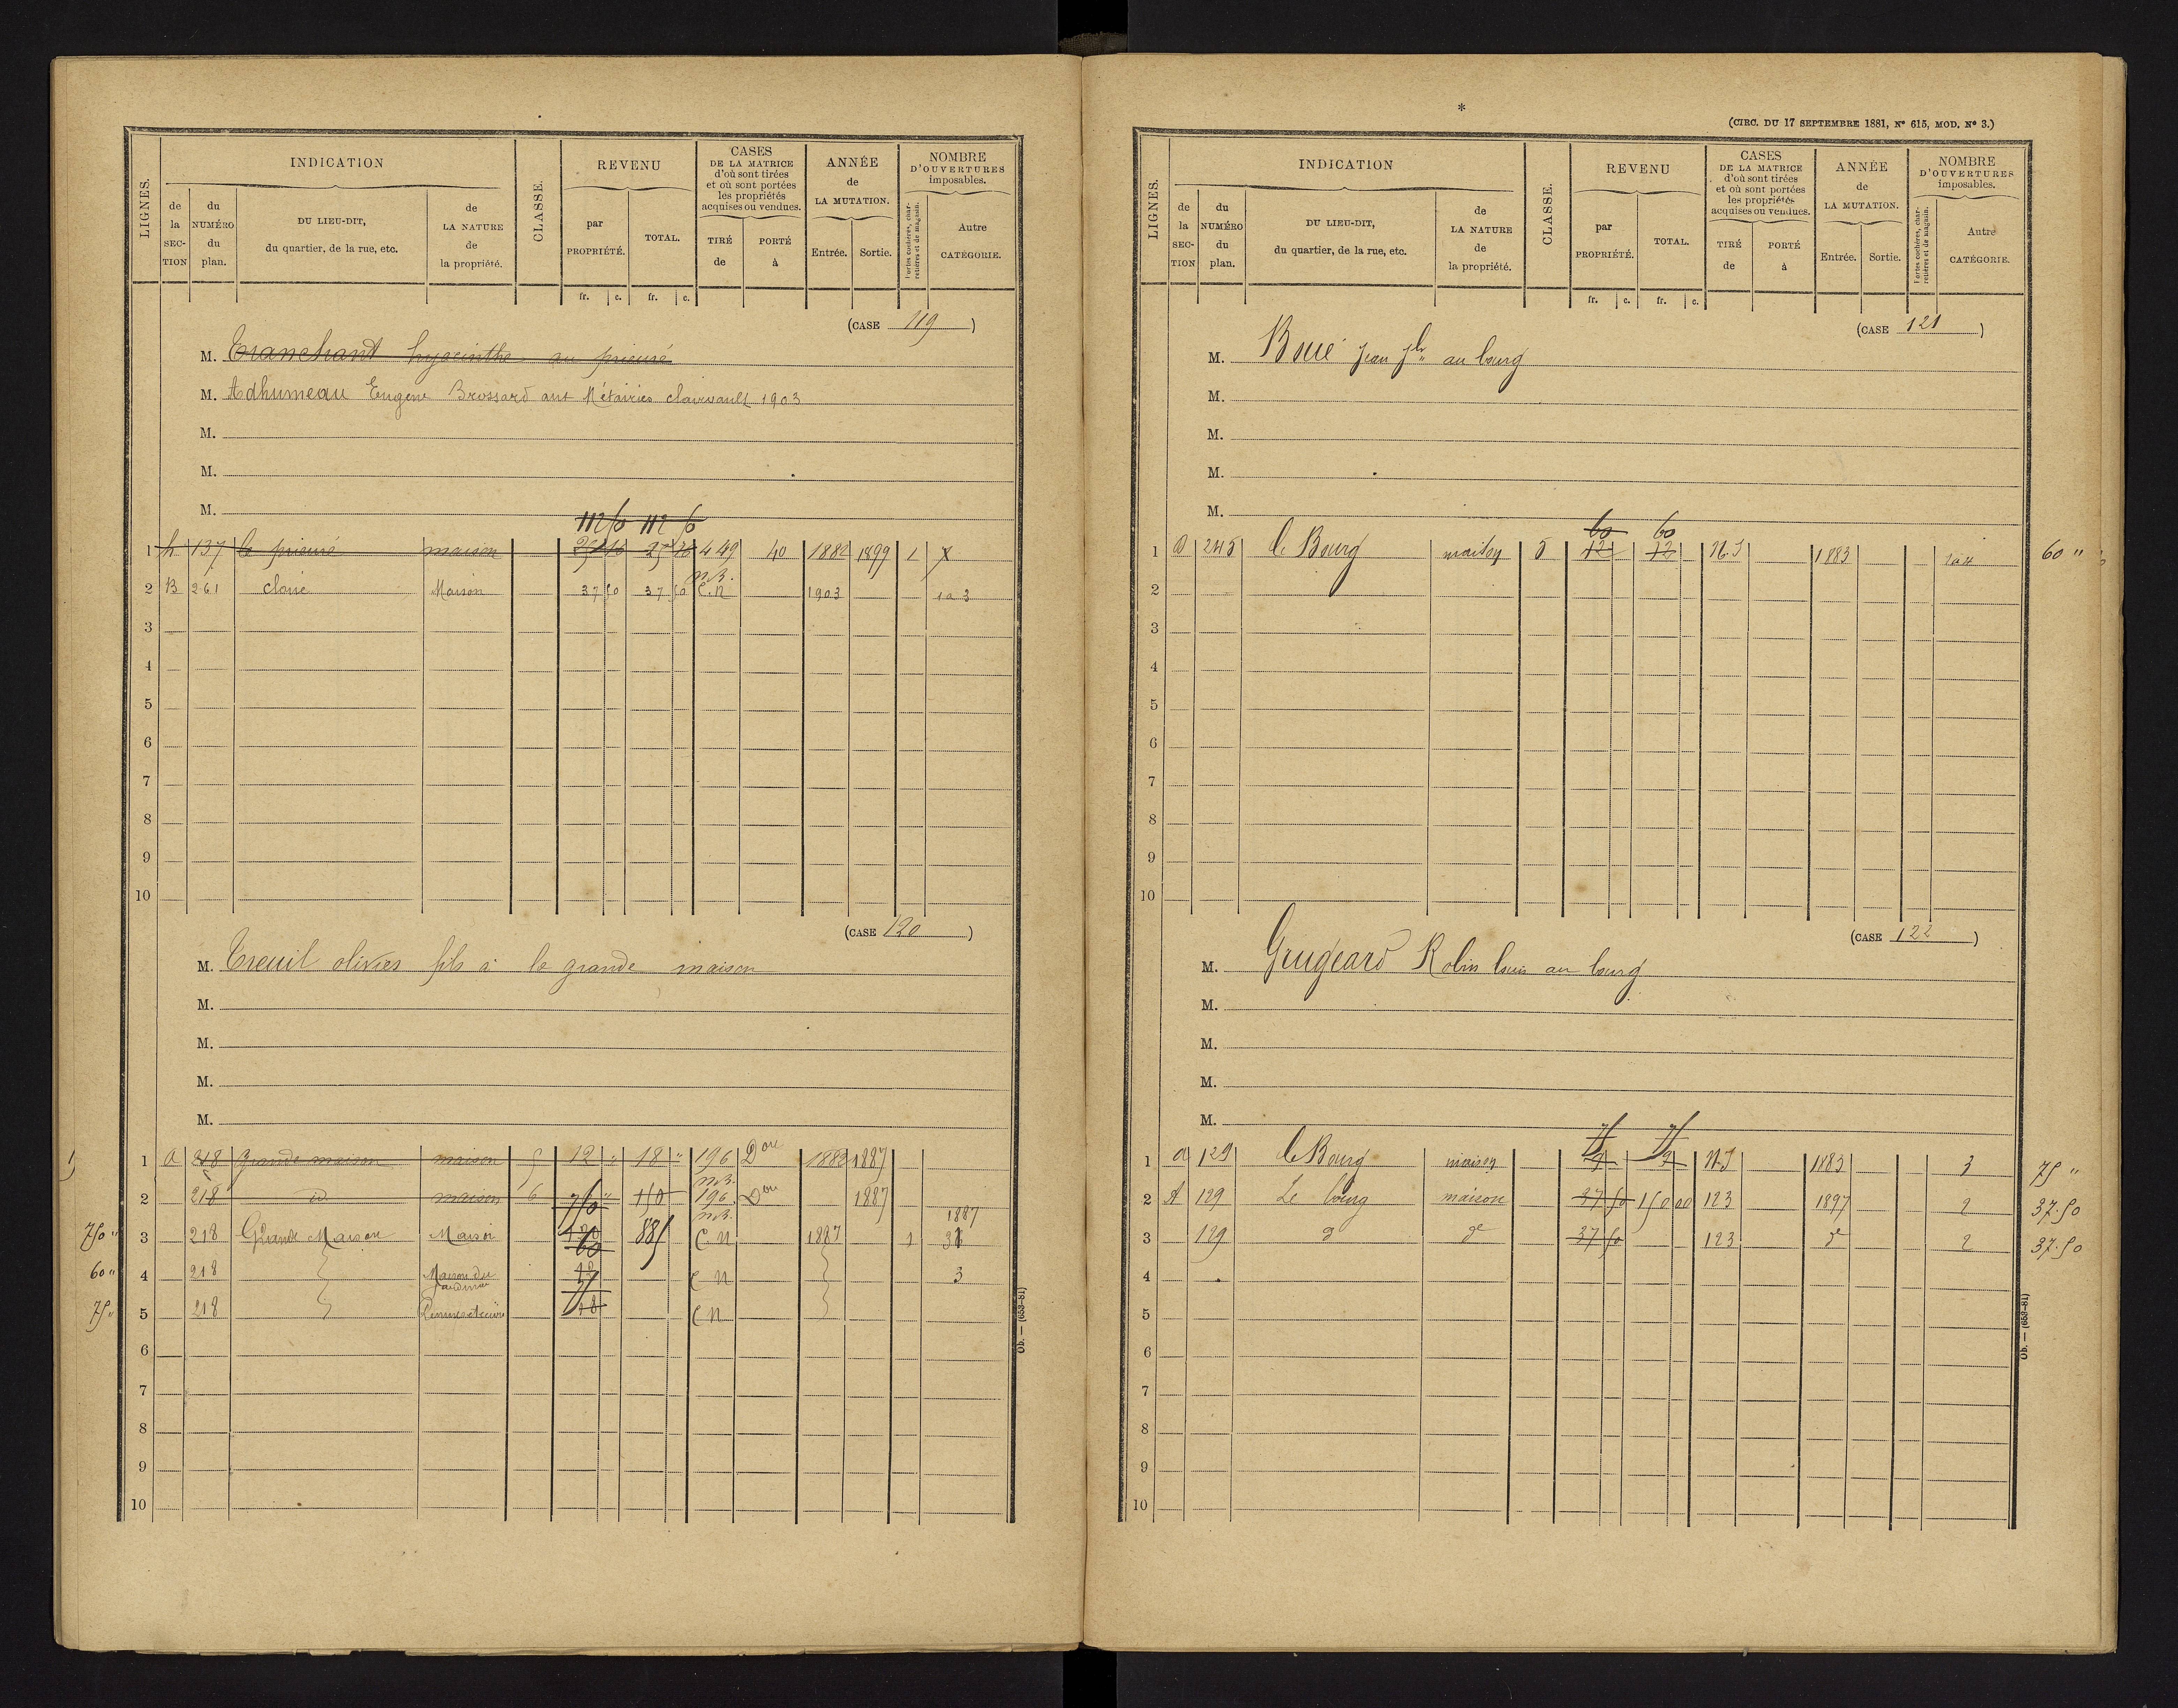 LIGNES.
INDICATION
CLASSE.
REVENU
CASES
DE LA MATRICE
d'où sont tirées
et où sont portées
les propriétés
acquises ou vendues.
ANNÉE
de
LA MUTATION.
NOMBRE
D'OUVERTURES
imposables.
de la SECTION
du NUMÉRO du plan.
DU LIEU-DIT,
du quartier, de la rue, etc.
de LA NATURE de la propriété.
par PROPRIÉTÉ.
TOTAL.
TIRÉ de
PORTÉ à
Entrée.
Sortie.
Portes cochères, charretières et de magasin.
Autre CATÉGORIE.
fr. c. fr. c.
(CASE 119)
M. Tranchant hyacinthe au prieuré
M. Adhumeau Eugène Brossard aux Métairies clairvault 1903
M.
M.
M.
112 50 112 50
1 h 137 le prieuré maison 449 40 1882 1899 1
2 B 261 Maison 37 50 37 50 C.N 1903 1 à 3
3
4
5
6
7
8
9
10
(CASE 120)
M. Treuil olivier fils à la grande maison
M.
M.
M.
M.
1 a 218 grande maison maison 5 12 " 18 " 196 Dou 1883 1887
2 218 id maison 6 " 150 196 Dou 1887
1887
750 " 3 218 Grande Maison Maison 885 C.N 1887 1
60 " 4 218 Maison du Jardinier 12 C N 3
75 " 5 218 18 C N
6
7
8
9
10
Ob. — (653-81)
*
(CIRC. DU 17 SEPTEMBRE 1881, Nº 615, MOD. Nº 3.)
LIGNES.
INDICATION
CLASSE.
REVENU
CASES
DE LA MATRICE
d'où sont tirées
et où sont portées
les propriétés
acquises ou vendues.
ANNÉE
de
LA MUTATION.
NOMBRE
D'OUVERTURES
imposables.
de la SECTION
du NUMÉRO du plan.
DU LIEU-DIT,
du quartier, de la rue, etc.
de LA NATURE de la propriété.
par PROPRIÉTÉ.
TOTAL.
TIRÉ de
PORTÉ à
Entrée.
Sortie.
Portes cochères, charretières et de magasin.
Autre CATÉGORIE.
fr. c. fr. c.
(CASE 121)
M. Boué Jean au bourg
M.
M.
M.
M.
60 60
1 245 le Bourg maison 5 12 12 1883 60 "
2
3
4
5
6
7
8
9
10
(CASE 122)
M. Grugeard Robin louis au bourg
M.
M.
M.
M.
75 75
1 a 129 le Bourg maison 9 9 1883 3 75 "
2 A 129 Le bourg maison 37 50 150 00 123 1897 2 37.50
3 129 d° d° 37 50 123 d° 2 37.50
4
5
6
7
8
9
10
Ob. — (653-81)